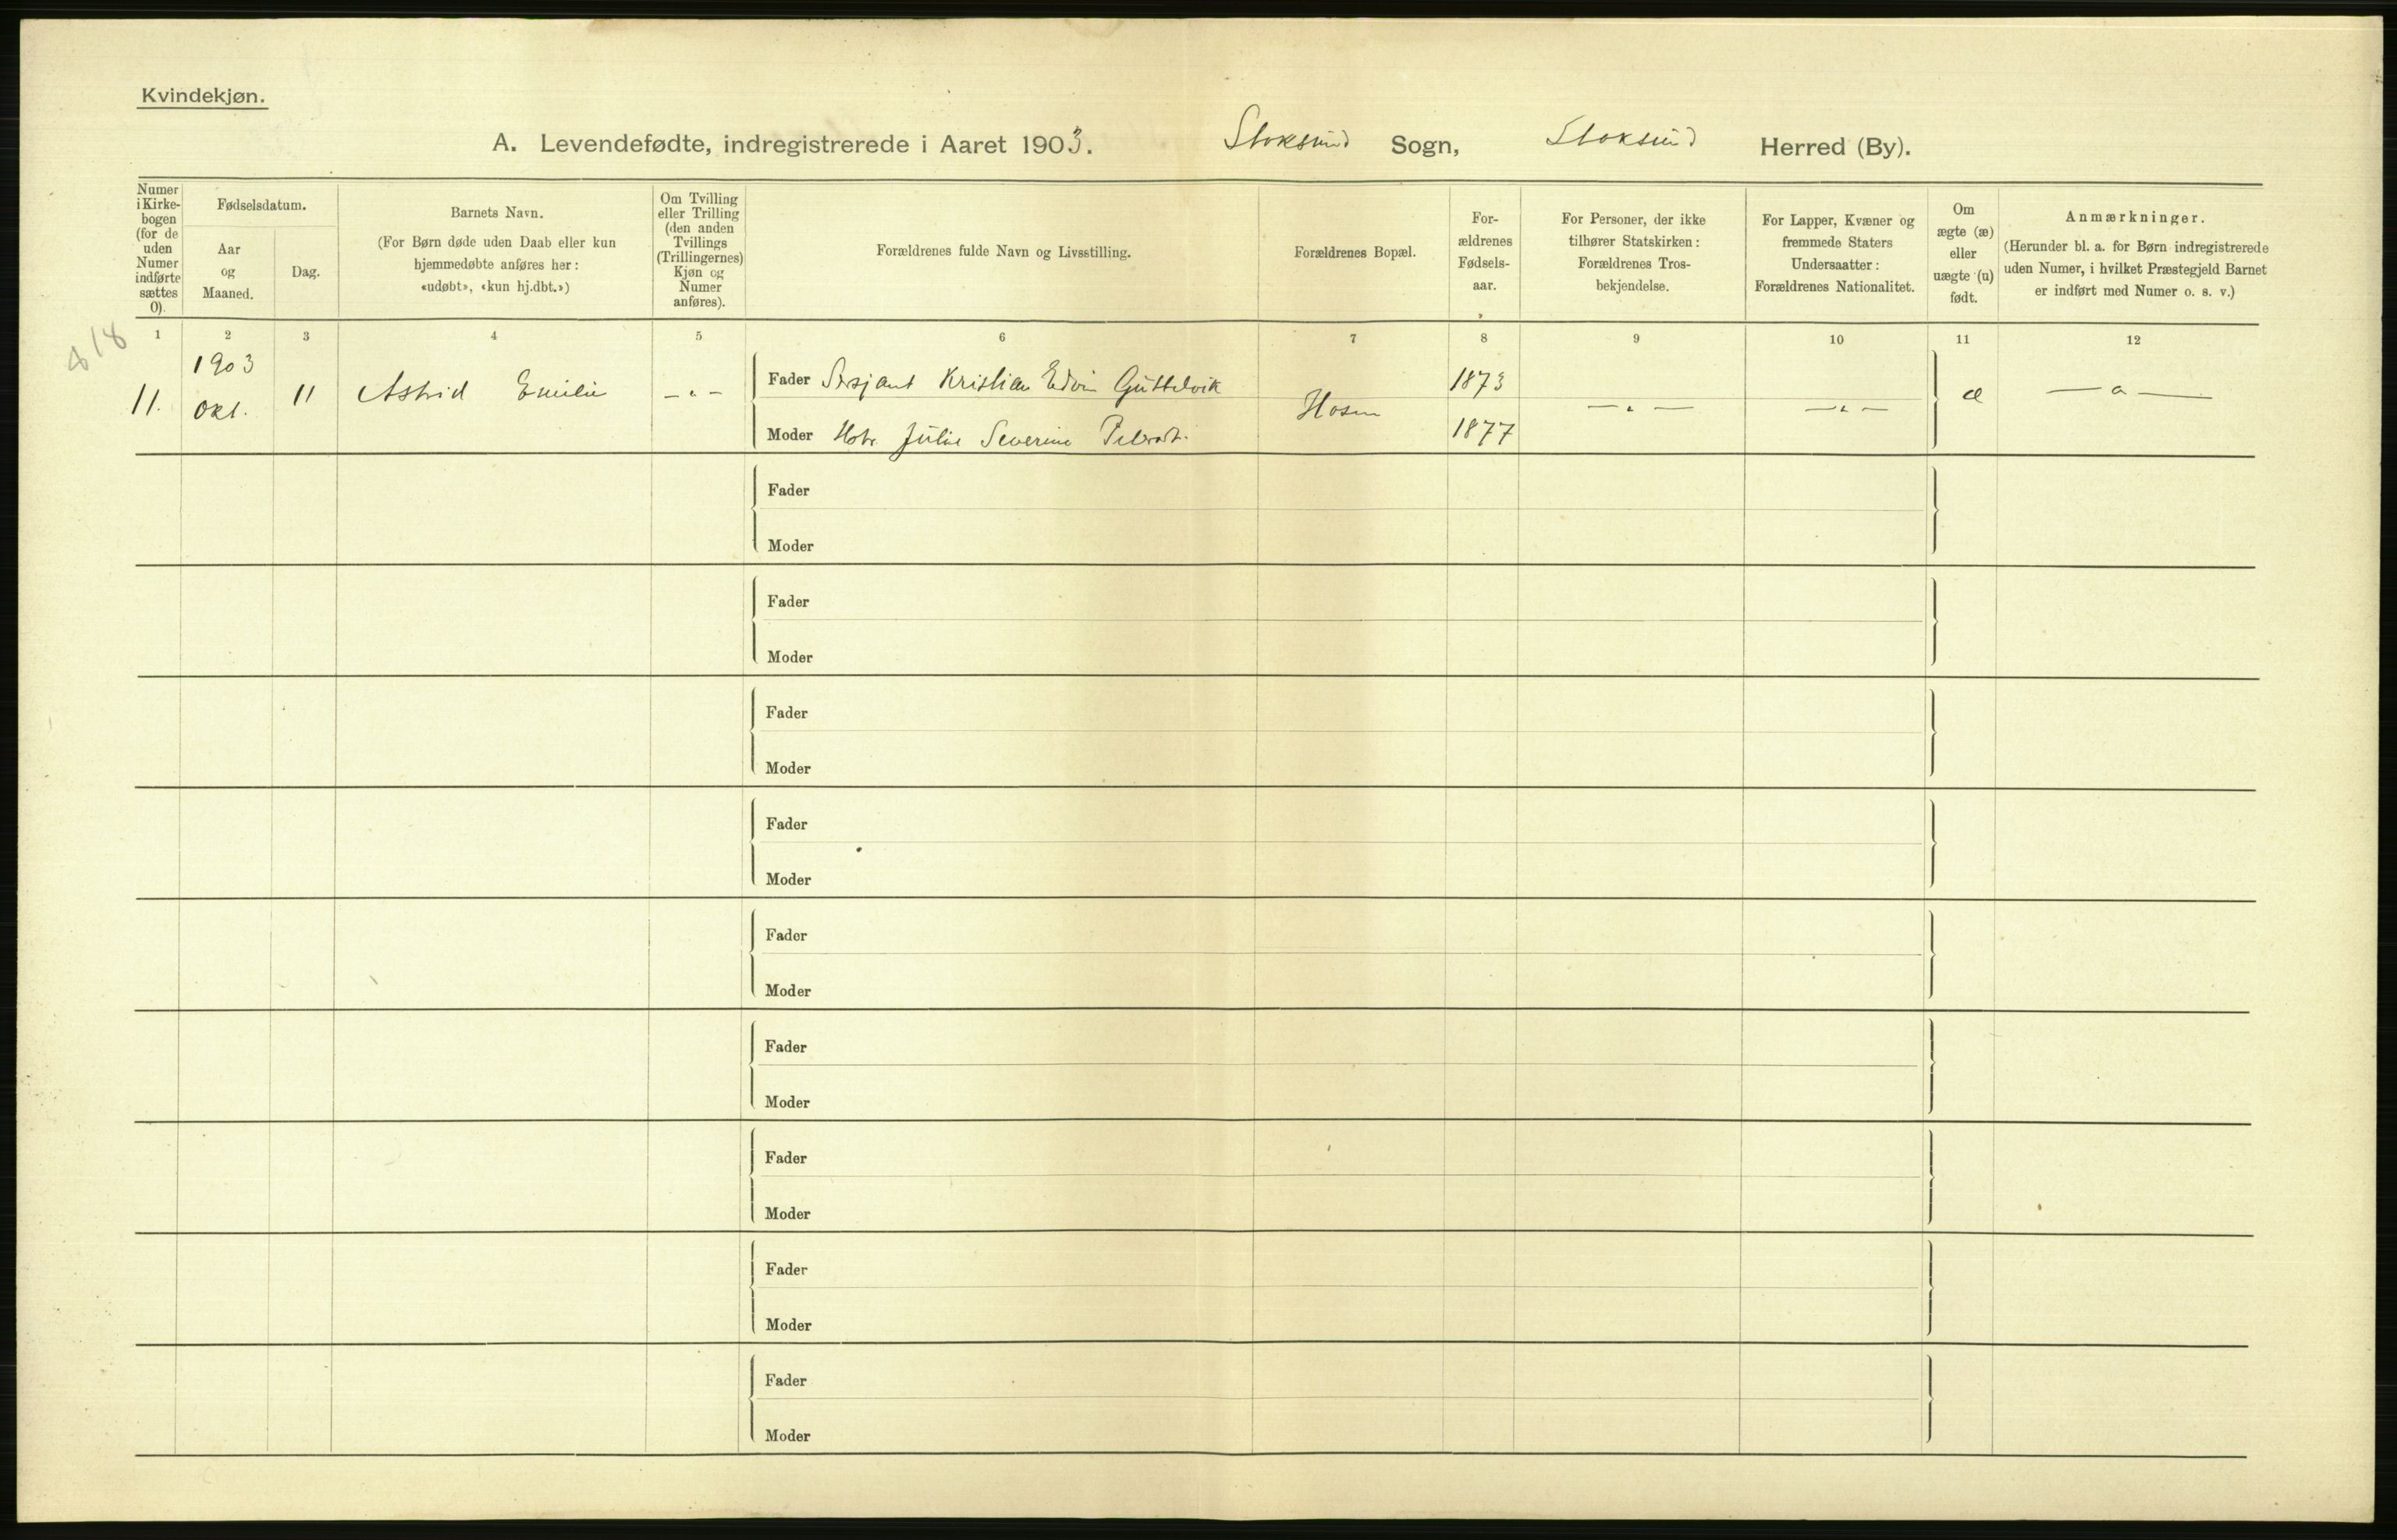 Kvindekjøn.
A. Levendefødte, indregistrerede i Aaret 1903. Stoksund Sogn, Stoksund Herred (By).
Numer i Kirke-bogen (for de uden Numer indførte sættes 0).
Fødselsdatum.
Aar og Maaned.
Dag.
Barnets Navn.
(For Børn døde uden Daab eller kun
hjemmedøbte anføres her:
«udøbt», «kun hj.dbt.»)
Om Tvilling
eller Trilling
(den anden
Tvillings
(Trillingernes)
Kjøn og
Numer
anføres).
Forældrenes fulde Navn og Livsstilling.
Forældrenes Bopæl.
For-
ældrenes
Fødsels-
aar.
For Personer, der ikke
tilhører Statskirken:
Forældrenes Tros-
bekjendelse.
For Lapper, Kvæner og
fremmede Staters
Undersaatter:
Forældrenes Nationalitet.
Om
ægte (æ)
eller
uægte (u)
født.
Anmærkninger.
(Herunder bl. a. for Børn indregistrerede
uden Numer, i hvilket Præstegjeld Barnet
er indført med Numer o. s. v.)
1 2 3 4 5 6 7 8 9 10 11 12
818
11. 1903 Okt. 11 Astrid Emilie — " —
Fader Sersjant Kristian Edvin Guttelvik
Moder Hstr. Julie Severine
1873
1877
— " — — " — æ — " —
Fader
Moder
Fader
Moder
Fader
Moder
Fader
Moder
Fader
Moder
Fader
Moder
Fader
Moder
Fader
Moder
Fader
Moder